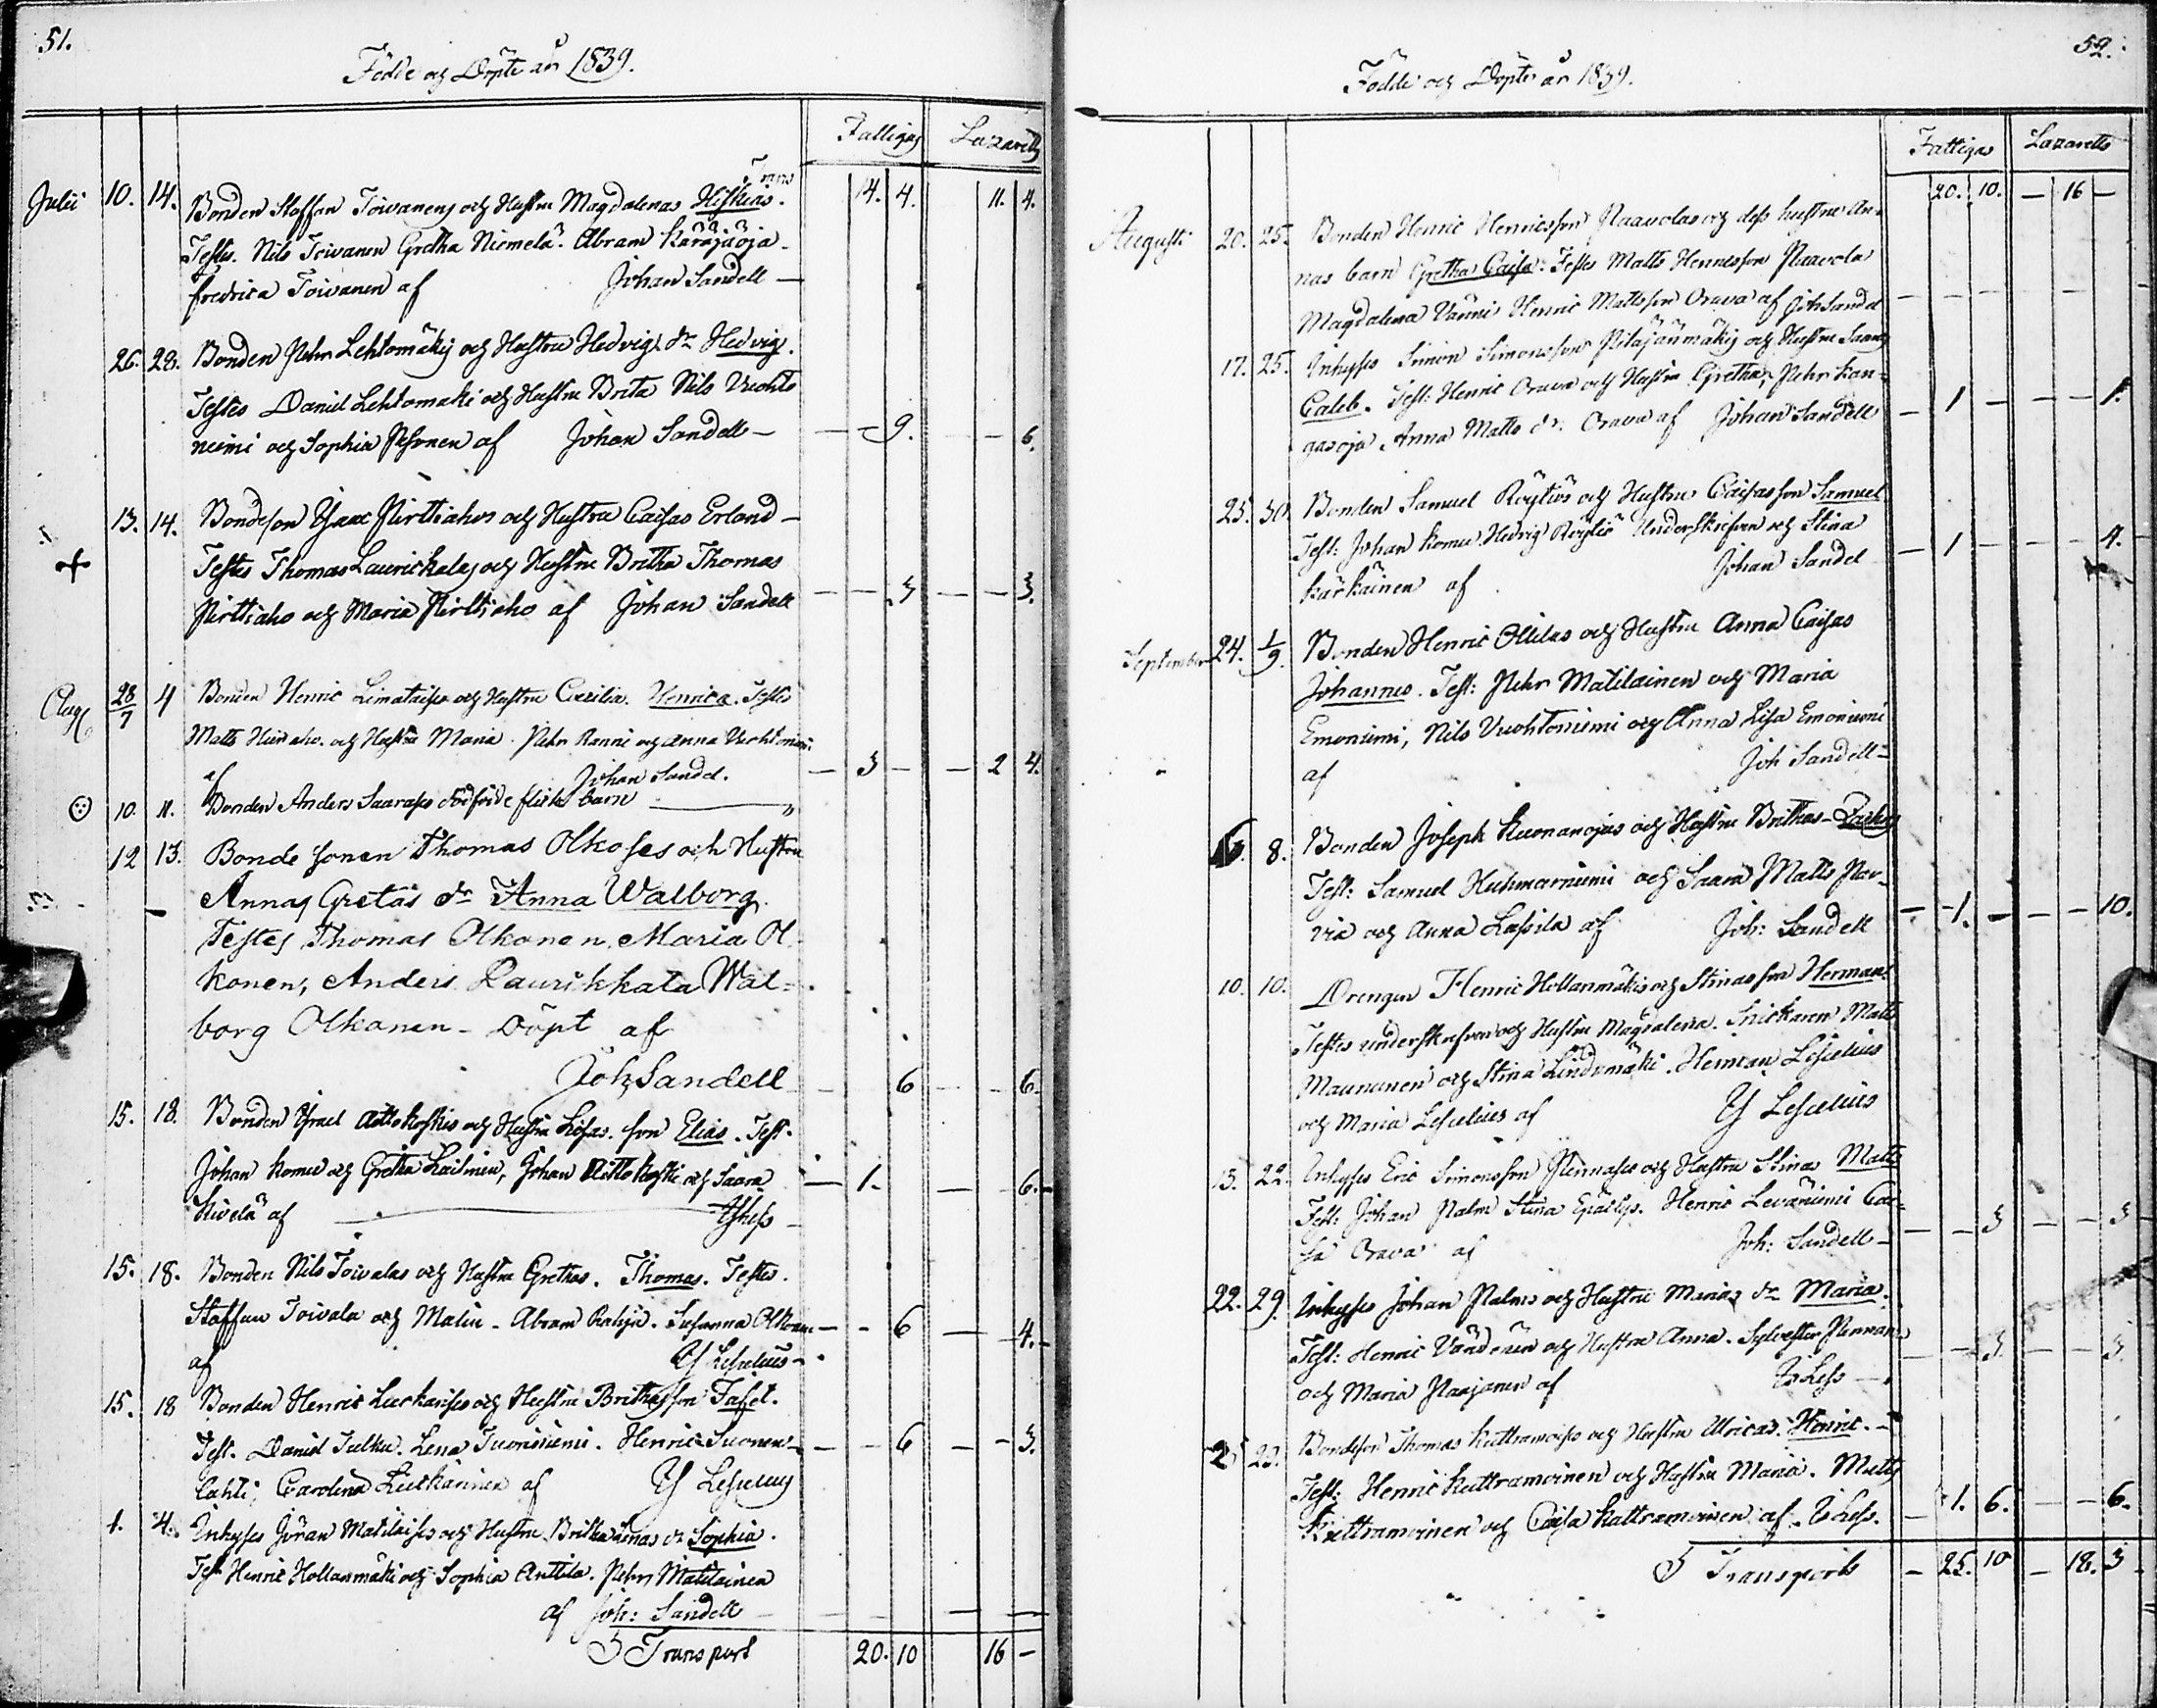 51.
Födde och Döpte år 1839.
Fattigas Lazaretts
Trans
Julii 10. 14. Bonden Staffan Toivanens och Hustru Magdalenas Hiskias. 14. 4. 11. 4.
Testes. Nils Toivanen Gretha Niemelä. Abram Käräjäoja
Fredrica Toivanen af Johan Sandell —
26. 28. Bonden Pehr Lehtomäkis och Hustru Hedvigs dr Hedvig.
Testes Daniel Lehtomäki och Hustru Brita Nils Vuohto
niemi och Sophia Pesonen af Johan Sandell — — — 9. — — 6.
13. 14. Bondeson Isaac Pirttiahos och Hustru Caisas Erland —
Testes Thomas Laurickalas och Hustru Britha Thomas
Pirttiaho och Maria Pirttiaho af Johan Sandell — — 3 — — 3.
Aug. 28/7 4 Bonden Henric Limataises och Hustru Cecilia. Henrica. Testes
Matts Heinaho och Hustru Maria. Pehr Ranni och Anna Vuohtoniemi
af Johan Sandel. — 3 — — 2 4.
10. 11. Bonden Anders Saarases dödfödde flicke barn — "
12 13. Bonde sonen Thomas Olkoses och Hustru
Annas Gretas dr Anna Walborg.
Testes Thomas Olkonen, Maria Ol-
konen, Anders Laurikkala Wal=
borg Olkonen - Döpt af
Joh Sandell — 6 — — 6.
15. 18. Bonden Israel Aittokoskis och Hustru Lisas. son Elias. Test.
Johan Komu och Gretha Leininen, Johan Aittokoski och Saara — 1. — — 6. —
Kivelä af — Is Less —
15. 18. Bonden Nils Toivalas och Hustru Grethas. Thomas. Testes.
Staffan Toivala och Malin - Abram Susanna Olkonen — - 6 — 4. -
af Is Lescelius -
15. 18 Bonden Henric Luckarises och Hustru Brithas son Tafet.
Test. Daniel Julku. Lena Tuoriniemi. Henric Suonen- — - 6 — - 3.
lahti, Carolina af Is Lescelius
1. 4. Inhyses Jöran Matilaises och Hustru Britha Lenas dr Sophia.
Test Henric Hollanmäki och Sophia Anttila. Pehr Matilainen
af Joh: Sandell — — — —
S Transport 20. 10 16 —
52.
Födde och Döpte år 1839.
Fattigas Lazaretts
20. 10. — 16 —
Augusti 20. 25. Bonden Henric Henricsson Paavolas och dess hustru An-
nas barn Gretha Caisa. Testes Matts Henricsson Paavola
Magdalena Vänni Henric Mattsson Orava af Joh Sandel — — — — —
17. 25. Inhyses Simon Simonsson Pitäjänmäkis och Hustru Saaras
Caleb. Test: Henric Orava och Hustru Gretha, Pehr Kan-
gasoja, Anna Matts dr. Orava af Johan Sandell — 1 — — — 1.
25. 30. Bonden Samuel Röytiös och Hustru Caisas son Samuel
Test: Johan Komu Hedvig Röytiö Underskrifven och Stina — 1 — — — 4.
Kärkäinen af Johan Sandel
September 24. 1/9. Bonden Henric Ollilas och Hustru Anna Caisas
Johannes. Test: Pehr Matilainen och Maria
Emoniemi, Nils Vuohtoniemi och Anna Lisa Emoniemi
af Joh Sandell -
6. 8. Bonden Joseph Kuonanojas och Hustru Brithas -
Test: Samuel Huhmarniemi och Saara Matts Par-
via och Anna Lassila af Joh: Sandell — 1. — — — 10.
10. 10. Drengen Henric Hollanmäkis och Stinas son Herman
Testes underskrefven och Hustru Magdalena. Snickaren Matts
Maununen och Stina Lindumäki. Herman Lescelius
och Maria Lescelius af Is Lescelius
13. 22. Inhyses Eric Simonsson Pennases och Hustru Stinas Matts
Test: Johan Palm Stina Henric Leväniemi Cai-
sa Orava af Joh: Sandell - — — 3 — — 3
22. 29. Inhyses Johan Palms och Hustru Marias dr Maria.
Test: Henric Vändenen och Hustru Anna. Sylvester Pennanen — — 3. — — 3.
och Maria Paajanen af Is Less —
25 29. Bondeson Thomas Kettramoises och Hustru Ulricas. Henric. -
Test: Henric Kettramoinen och Hustru Maria. Matts
Kettramoinen och Caisa Kettramoinen af. Is Less. — 1. 6. — — 6.
S Transport — 25. 10 — 18. 3